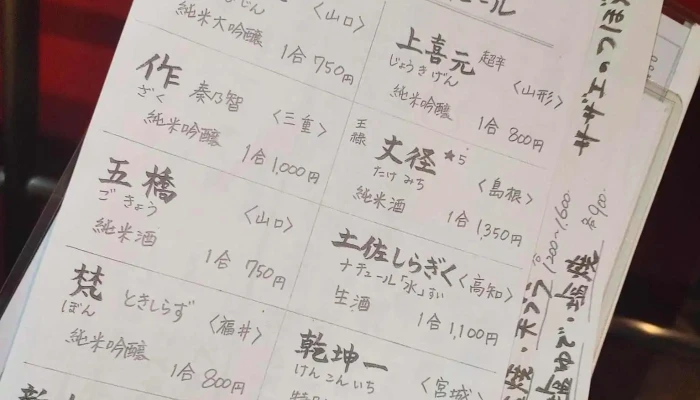 じん
〈山口〉
純米大吟醸
1合 750円
作
ざく
奏乃智
〈三重〉
純米吟醸
1合 1,000円
五橋
ごきょう
〈山口〉
純米酒
1合 750円
梵
ぼん
ときしらず
〈福井〉
純米吟醸
1合 800円
ール
上喜元 超辛
じょうきげん
〈山形〉
純米吟醸
1合 800円
王祿
丈径 ★5
たけみち
〈島根〉
純米酒
1合 1,350円
土佐しらぎく
〈高知〉
ナチュール「水」
生酒
1合 1,100円
乾坤一
けんこんいち
〈宮城〉
天プラ
1200〜1,600.
各900.